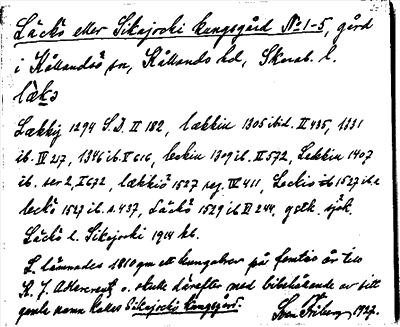 Läckö eller Sikajocki kungsgård No 1-5, gård
i Kållandsö sn, Kållands hd, Skarab. l.
läkö
Lækky 1294 S.D. II 182, lækkiu 1305 ibid. II 435, 1331
ib. IV 217, 1346 ib. V 616, leckiu 1309 ib. II 572, Lekkiu 1407
ib. ser 2, I 672, lækkiö 1527 reg. IV 411, 1527 ib.
leckö 1527 ib. s. 437, Läckö 1529 ib. VI 244, sjök.
Läckö l. Sikajocki 1914 kk.
L. lämnades 1810 gm ett kungabrev på åt
A. J. Adlercreutz o. skulle därefter med bibehållande av sitt
gamla namn kallas Sikajocki kungsgård.
1927.